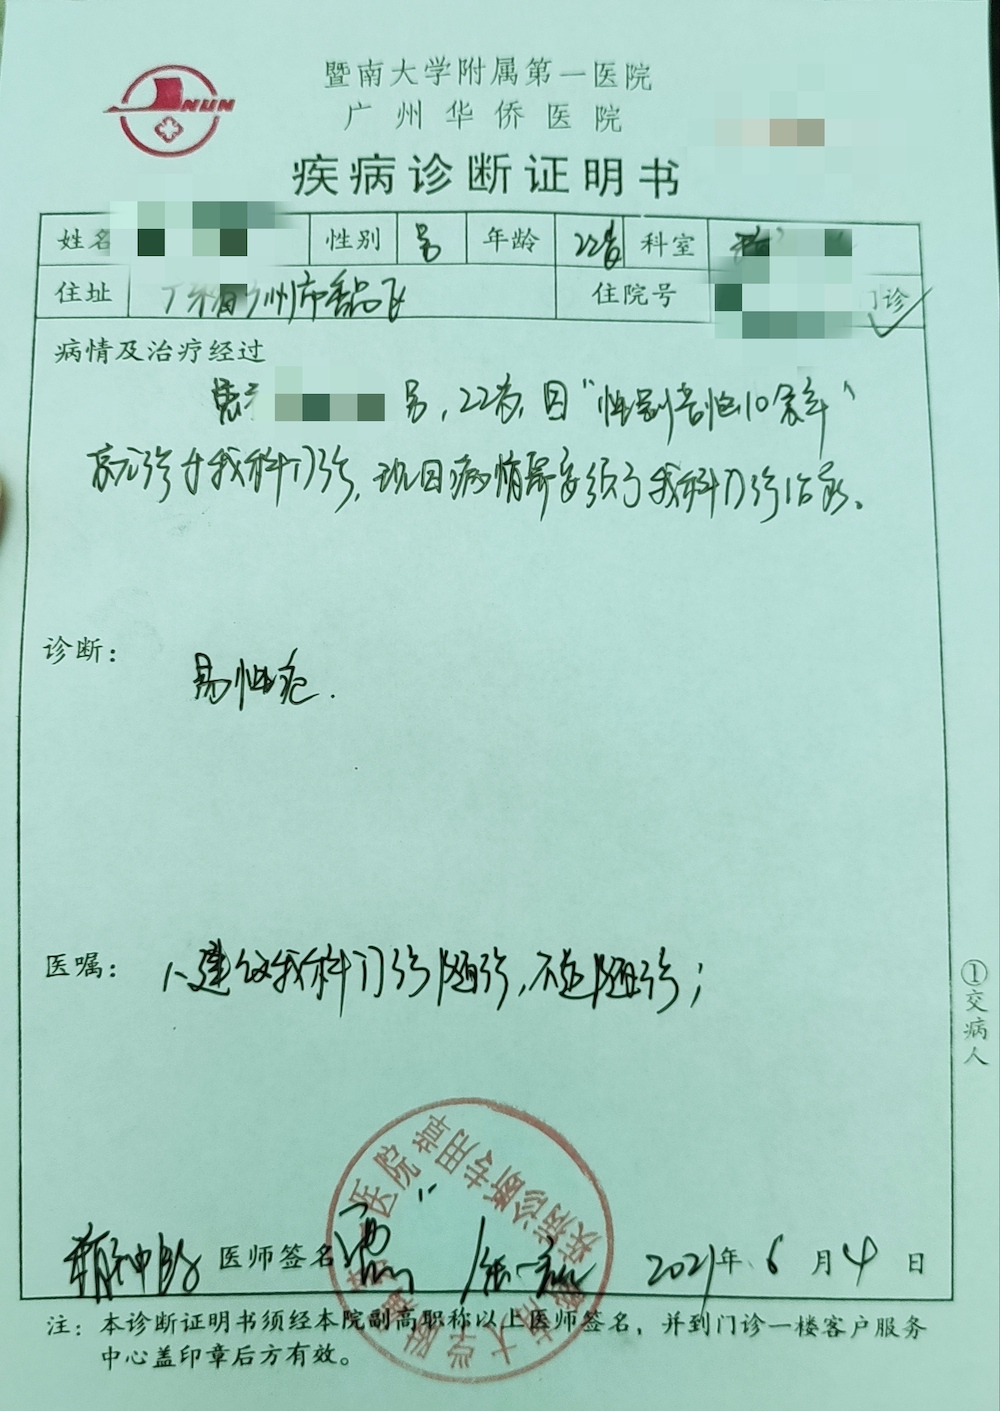 JNUN
暨南大学附属第一医院
广州华侨医院
疾病诊断证明书
姓名 性别 男 年龄 22岁 科室
住址 广东省广州市番禺 住院号 门诊
病情及治疗经过
患者 男，22岁，因“性别苦恼10余年”
就诊于我科门诊，现因病情需要须于我科门诊治疗。
诊断：
易性症.
医嘱：
1、建议我科门诊随诊，不适随诊；
①交病人
精神 医师签名 2021年6月4日
大学附 医院
疾病诊断专用章
注：本诊断证明书须经本院副高职称以上医师签名，并到门诊一楼客户服务
中心盖印章后方有效。